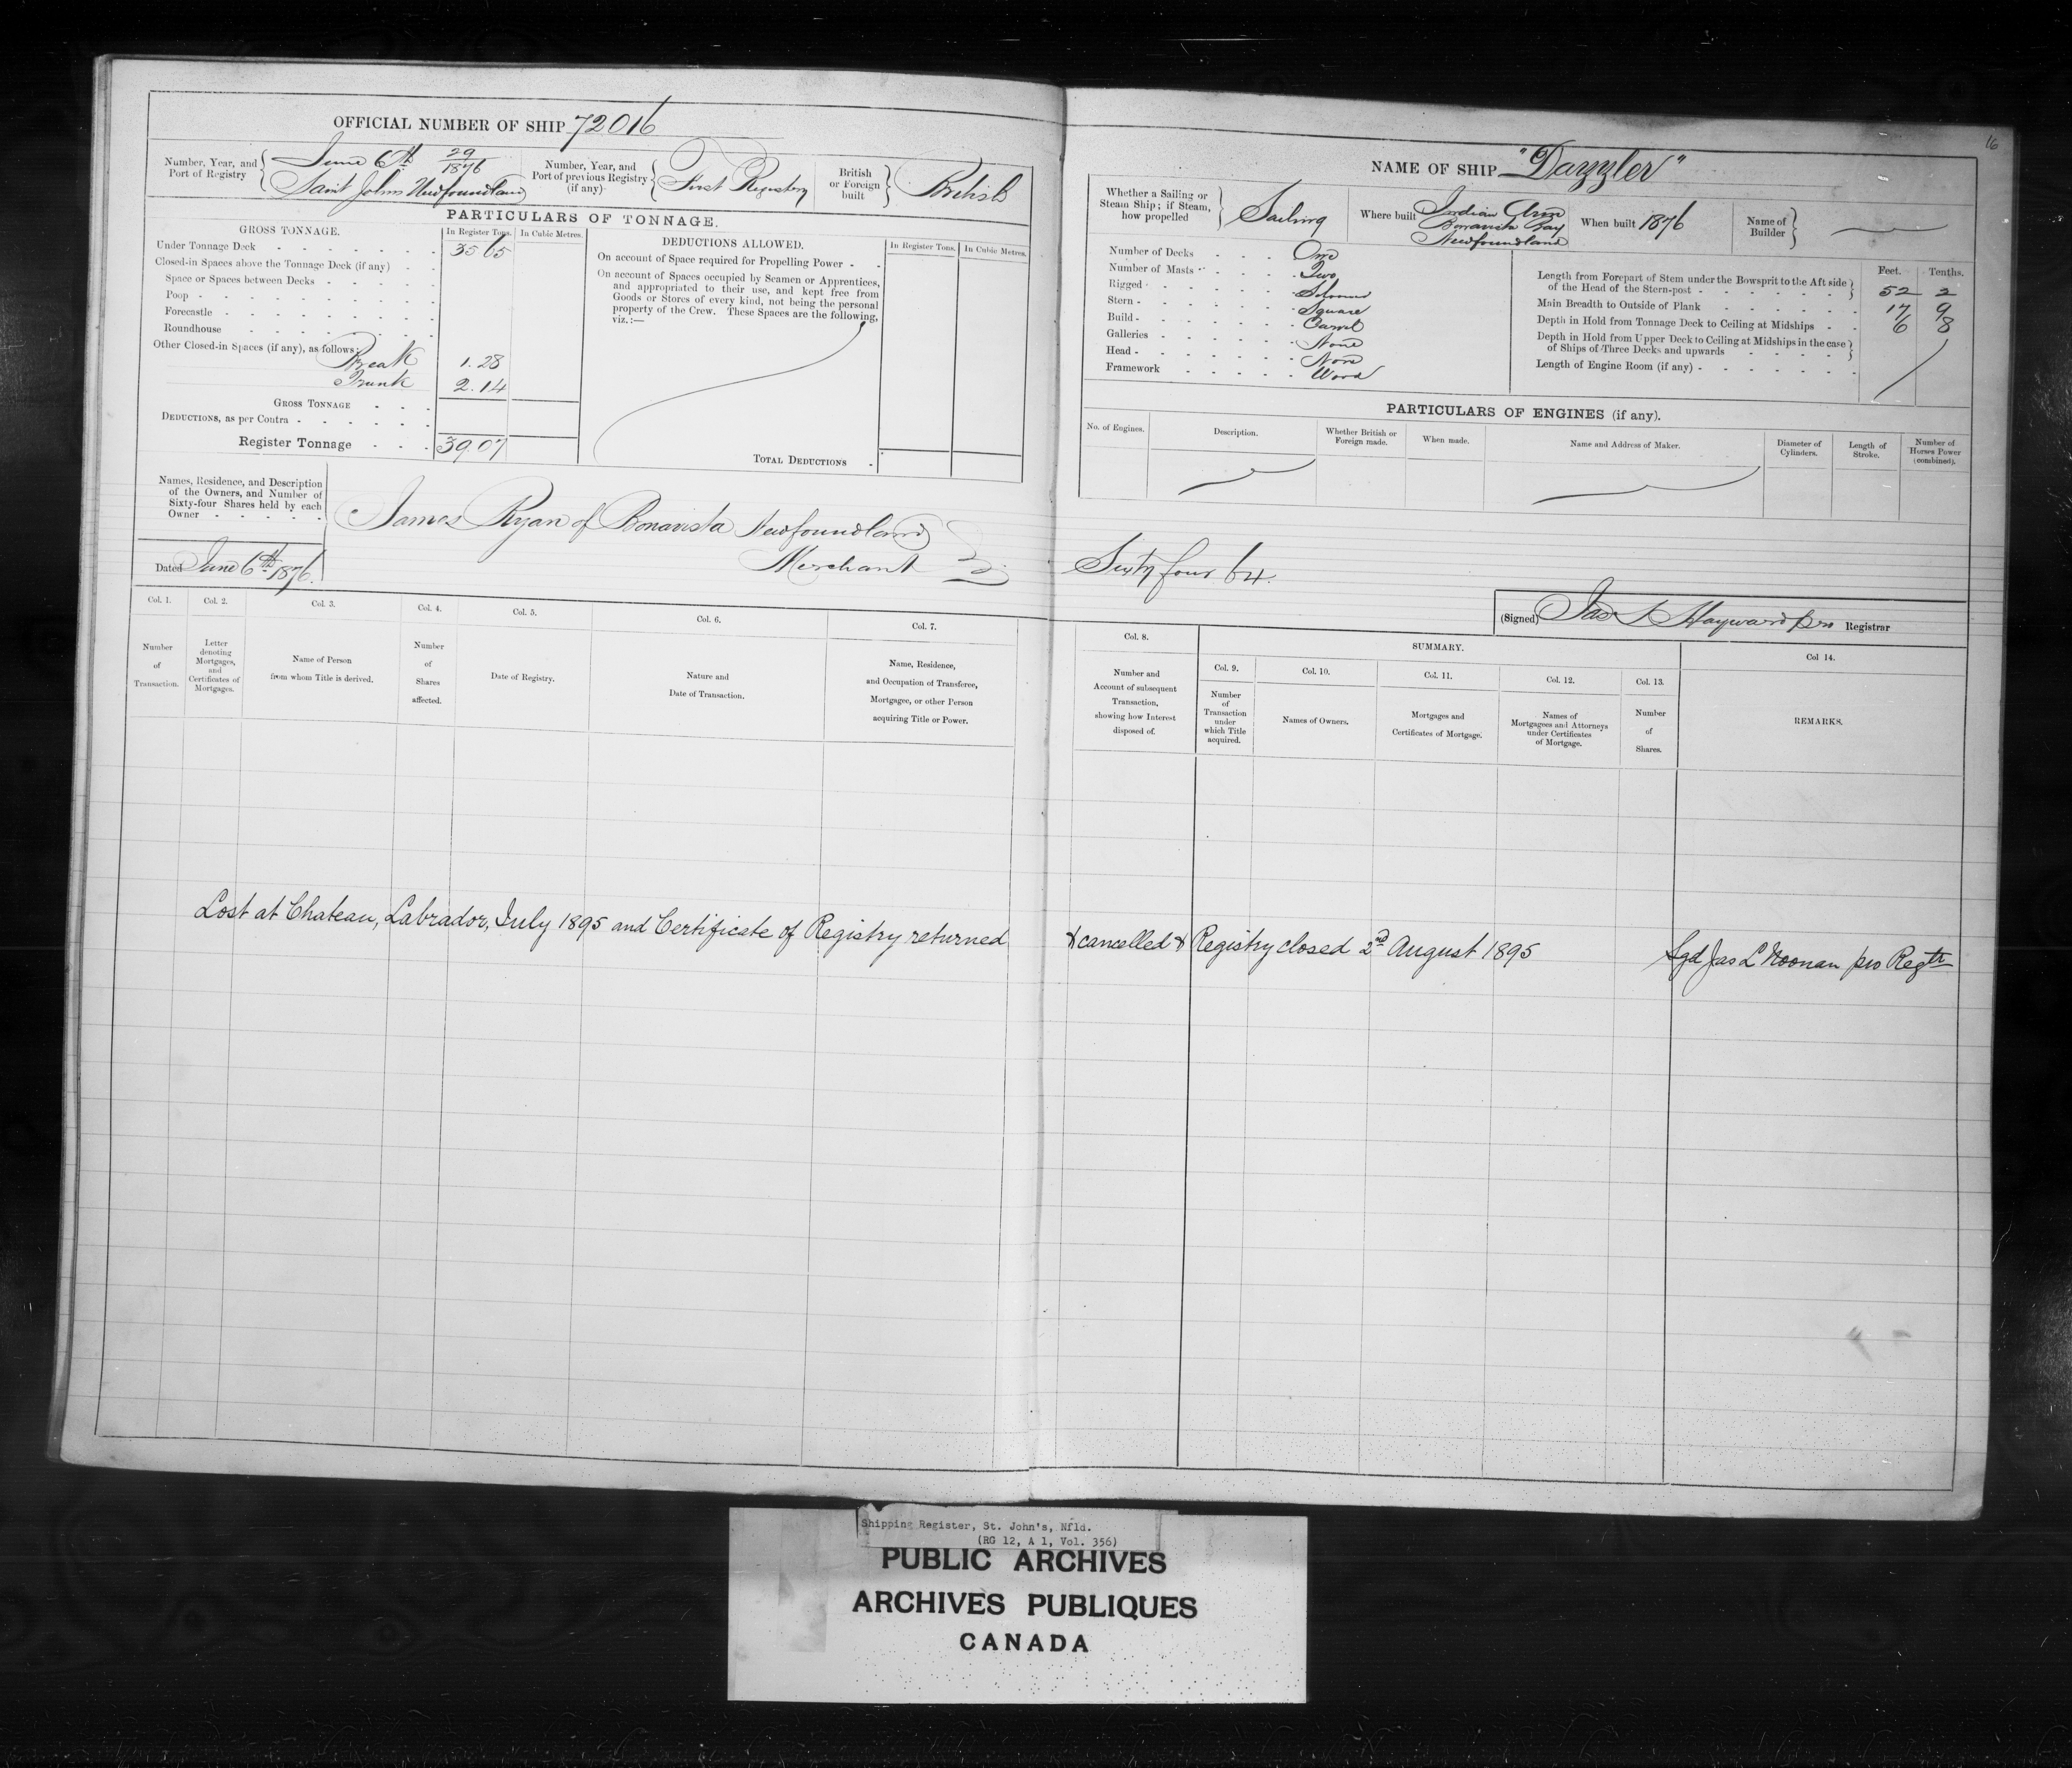 16
OFFICIAL NUMBER OF SHIP 72016
Number, Year, and
Port of Registry
June 6th 29/1876
Saint Johns Newfoundland
Number, Year, and
Port of previous Registry
(if any)
First Registry
British
or Foreign
built
British
PARTICULARS OF TONNAGE.
GROSS TONNAGE.
In Register Tons.
In Cubic Metres.
Under Tonnage Deck 35 65
Closed-in Spaces above the Tonnage Deck (if any)
Space or Spaces between Decks
Poop
Forecastle
Roundhouse
Other Closed-in Spaces (if any), as follows:
Break 1.28
Trunk 2.14
GROSS TONNAGE
DEDUCTIONS, as per Contra
Register Tonnage 39.07
DEDUCTIONS ALLOWED.
In Register Tons.
In Cubic Metres.
On account of Space required for Propelling Power
On account of Spaces occupied by Seamen or Apprentices,
and appropriated to their use, and kept free from
Goods or Stores of every kind, not being the personal
property of the Crew. These Spaces are the following,
viz.:—
TOTAL DEDUCTIONS
Names, Residence, and Description
of the Owners, and Number of
Sixty-four Shares held by each
Owner
James Ryan of Bonavista Newfoundland
Merchant
Dated June 6th 1876.
NAME OF SHIP "Dazzler"
Whether a Sailing or
Steam Ship; if Steam,
how propelled
Sailing
Where built
Indian Arm
Bonavista Bay
Newfoundland
When built 1876
Name of
Builder
Number of Decks One
Number of Masts Two
Rigged Schooner
Stern Square
Build Carvel
Galleries None
Head None
Framework Wood
Feet. Tenths.
Length from Forepart of Stem under the Bowsprit to the Aft side
of the Head of the Stern-post 52 2
Main Breadth to Outside of Plank 17 9
Depth in Hold from Tonnage Deck to Ceiling at Midships 6 8
Depth in Hold from Upper Deck to Ceiling at Midships in the case
of Ships of Three Decks and upwards
Length of Engine Room (if any)
PARTICULARS OF ENGINES (if any).
No. of Engines.
Description.
Whether British or
Foreign made.
When made.
Name and Address of Maker.
Diameter of
Cylinders.
Length of
Stroke.
Number of
Horses Power
(combined).
Sixty four 64.
(Signed) Jas L Hayward pro Registrar
Col. 1.
Number
of
Transaction.
Col. 2.
Letter
denoting
Mortgages,
and
Certificates of
Mortgages.
Col. 3.
Name of Person
from whom Title is derived.
Col. 4.
Number
of
Shares
affected.
Col. 5.
Date of Registry.
Col. 6.
Nature and
Date of Transaction.
Col. 7.
Name, Residence,
and Occupation of Transferee,
Mortgagee, or other Person
acquiring Title or Power.
Col. 8.
Number and
Account of subsequent
Transaction,
showing how Interest
disposed of.
SUMMARY.
Col. 9.
Number
of
Transaction
under
which Title
acquired.
Col. 10.
Names of Owners.
Col. 11.
Mortgages and
Certificates of Mortgage.
Col. 12.
Names of
Mortgagees and Attorneys
under Certificates
of Mortgage.
Col. 13.
Number
of
Shares.
Col 14.
REMARKS.
Lost at Chateau, Labrador, July 1895 and Certificate of Registry returned & cancelled & Registry closed 2nd August 1895 Sgd Jas L Noonan pro Regtr
Shipping Register, St. John's, Nfld.
(RG 12, A 1, Vol. 356)
PUBLIC ARCHIVES
ARCHIVES PUBLIQUES
CANADA